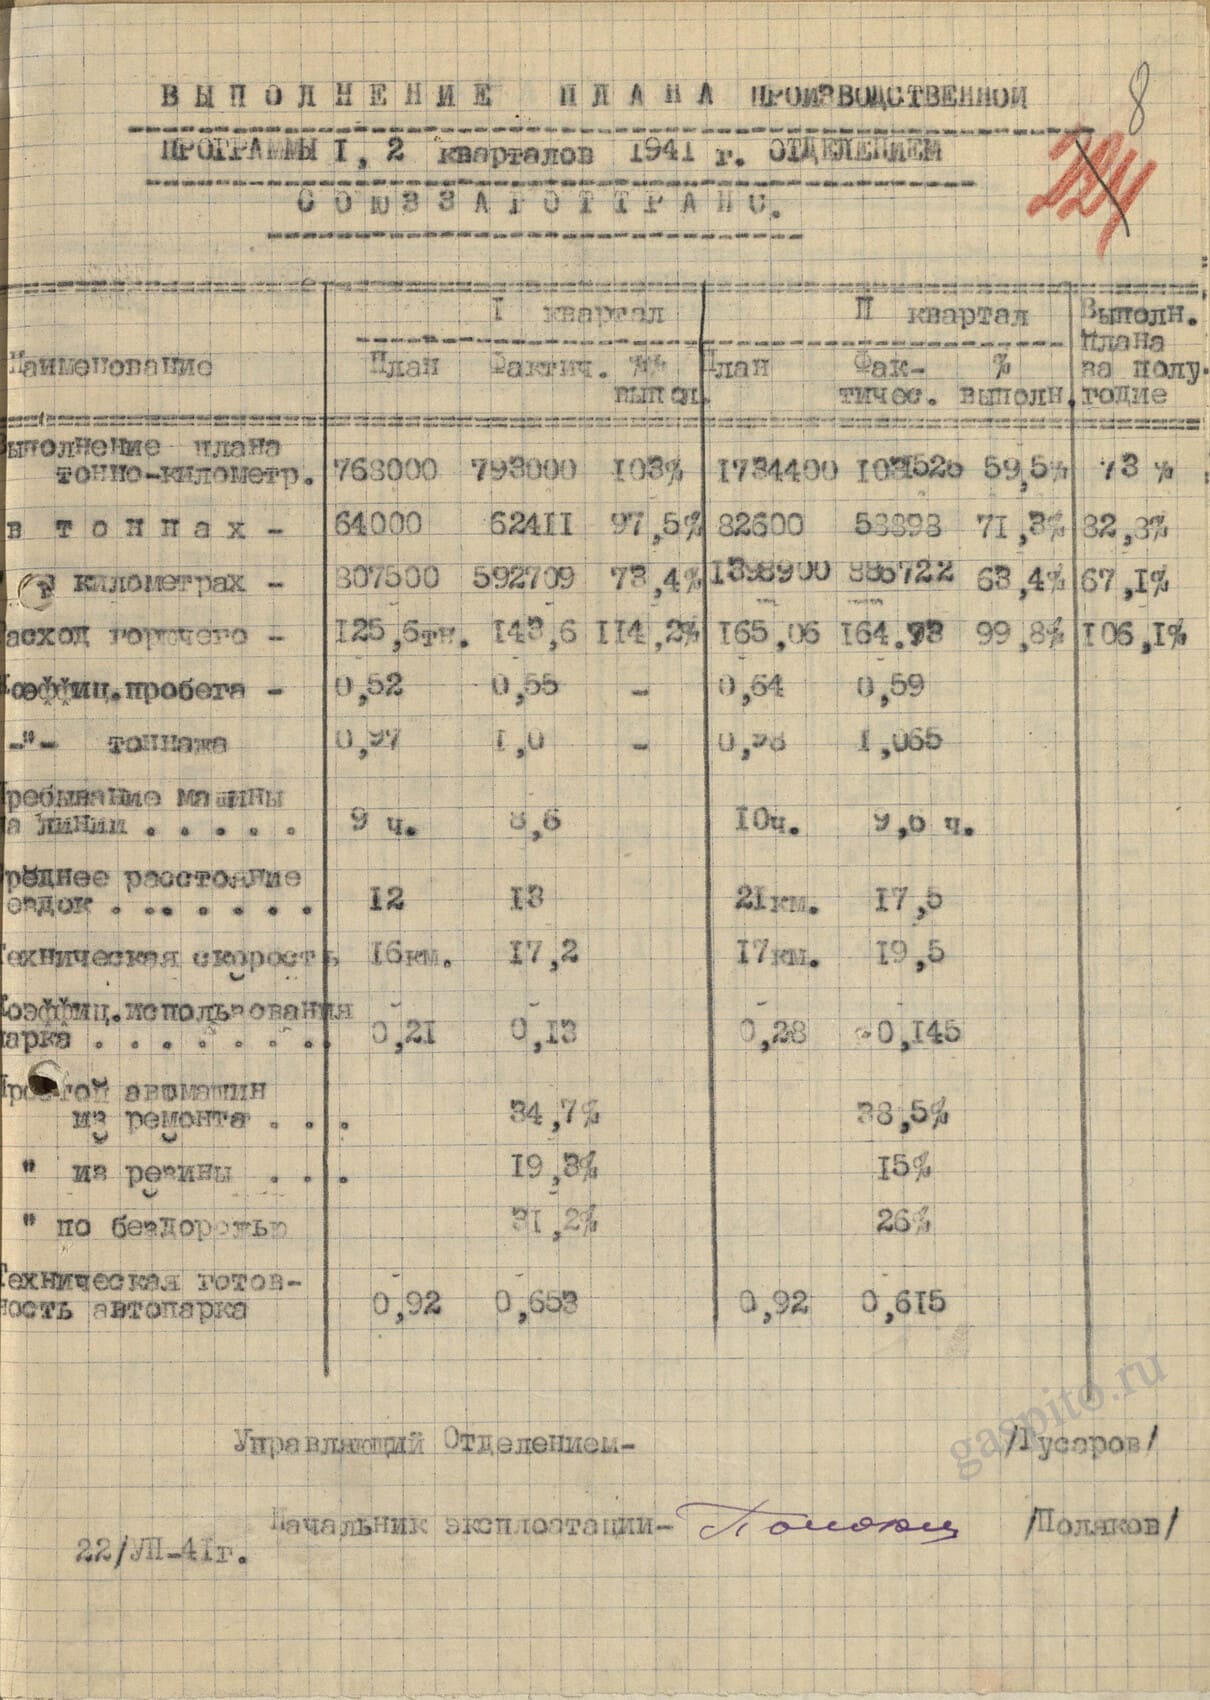 8
ВЫПОЛНЕНИЕ ПЛАНА ПРОИЗВОДСТВЕННОЙ
ПРОГРАММЫ I, 2 кварталов 1941 г. ОТДЕЛЕНИЕМ
224
СОЮЗЗАГОТТРАНС.
I квартал II квартал Выполн.
плана
Наименование План Фактич. %% План Фак- % за полу-
выпол. тичес. выполн. годие
Выполнение плана
тонно-километр. 768000 793000 103% 1734400 1031520 59,5% 73 %
в тоннах - 64000 62411 97,5% 82600 58898 71,3% 82,8%
в километрах - 807500 592709 73,4% 1398900 886722 63,4% 67,1%
Расход горючего - 125,6тн. 143,6 114,2% 165,06 164.73 99,8% 106,1%
Коэффиц.пробега - 0,52 0,55 - 0,54 0,59
-"- тоннажа 0,97 1,0 - 0,98 1,065
Пребывание машины
на линии . . . . . 9 ч. 8,6 10ч. 9,6 ч.
Среднее расстояние
ездок . .. . . . . 12 13 21км. 17,5
Техническая скорость 16км. 17,2 17км. 19,5
Коэффиц.использования
парка . . . . . . . 0,21 0,13 0,28 0,145
Простой автомашин
из ремонта . . . 34,7% 38,5%
" из резины . . . 19,3% 15%
" по бездорожью 31,2% 26%
Техническая готов-
ность автопарка 0,92 0,653 0,92 0,615
Управляющий Отделением- /Гусаров/
Начальник эксплоатации- /Поляков/
22/УП-41г.
gaspito.ru